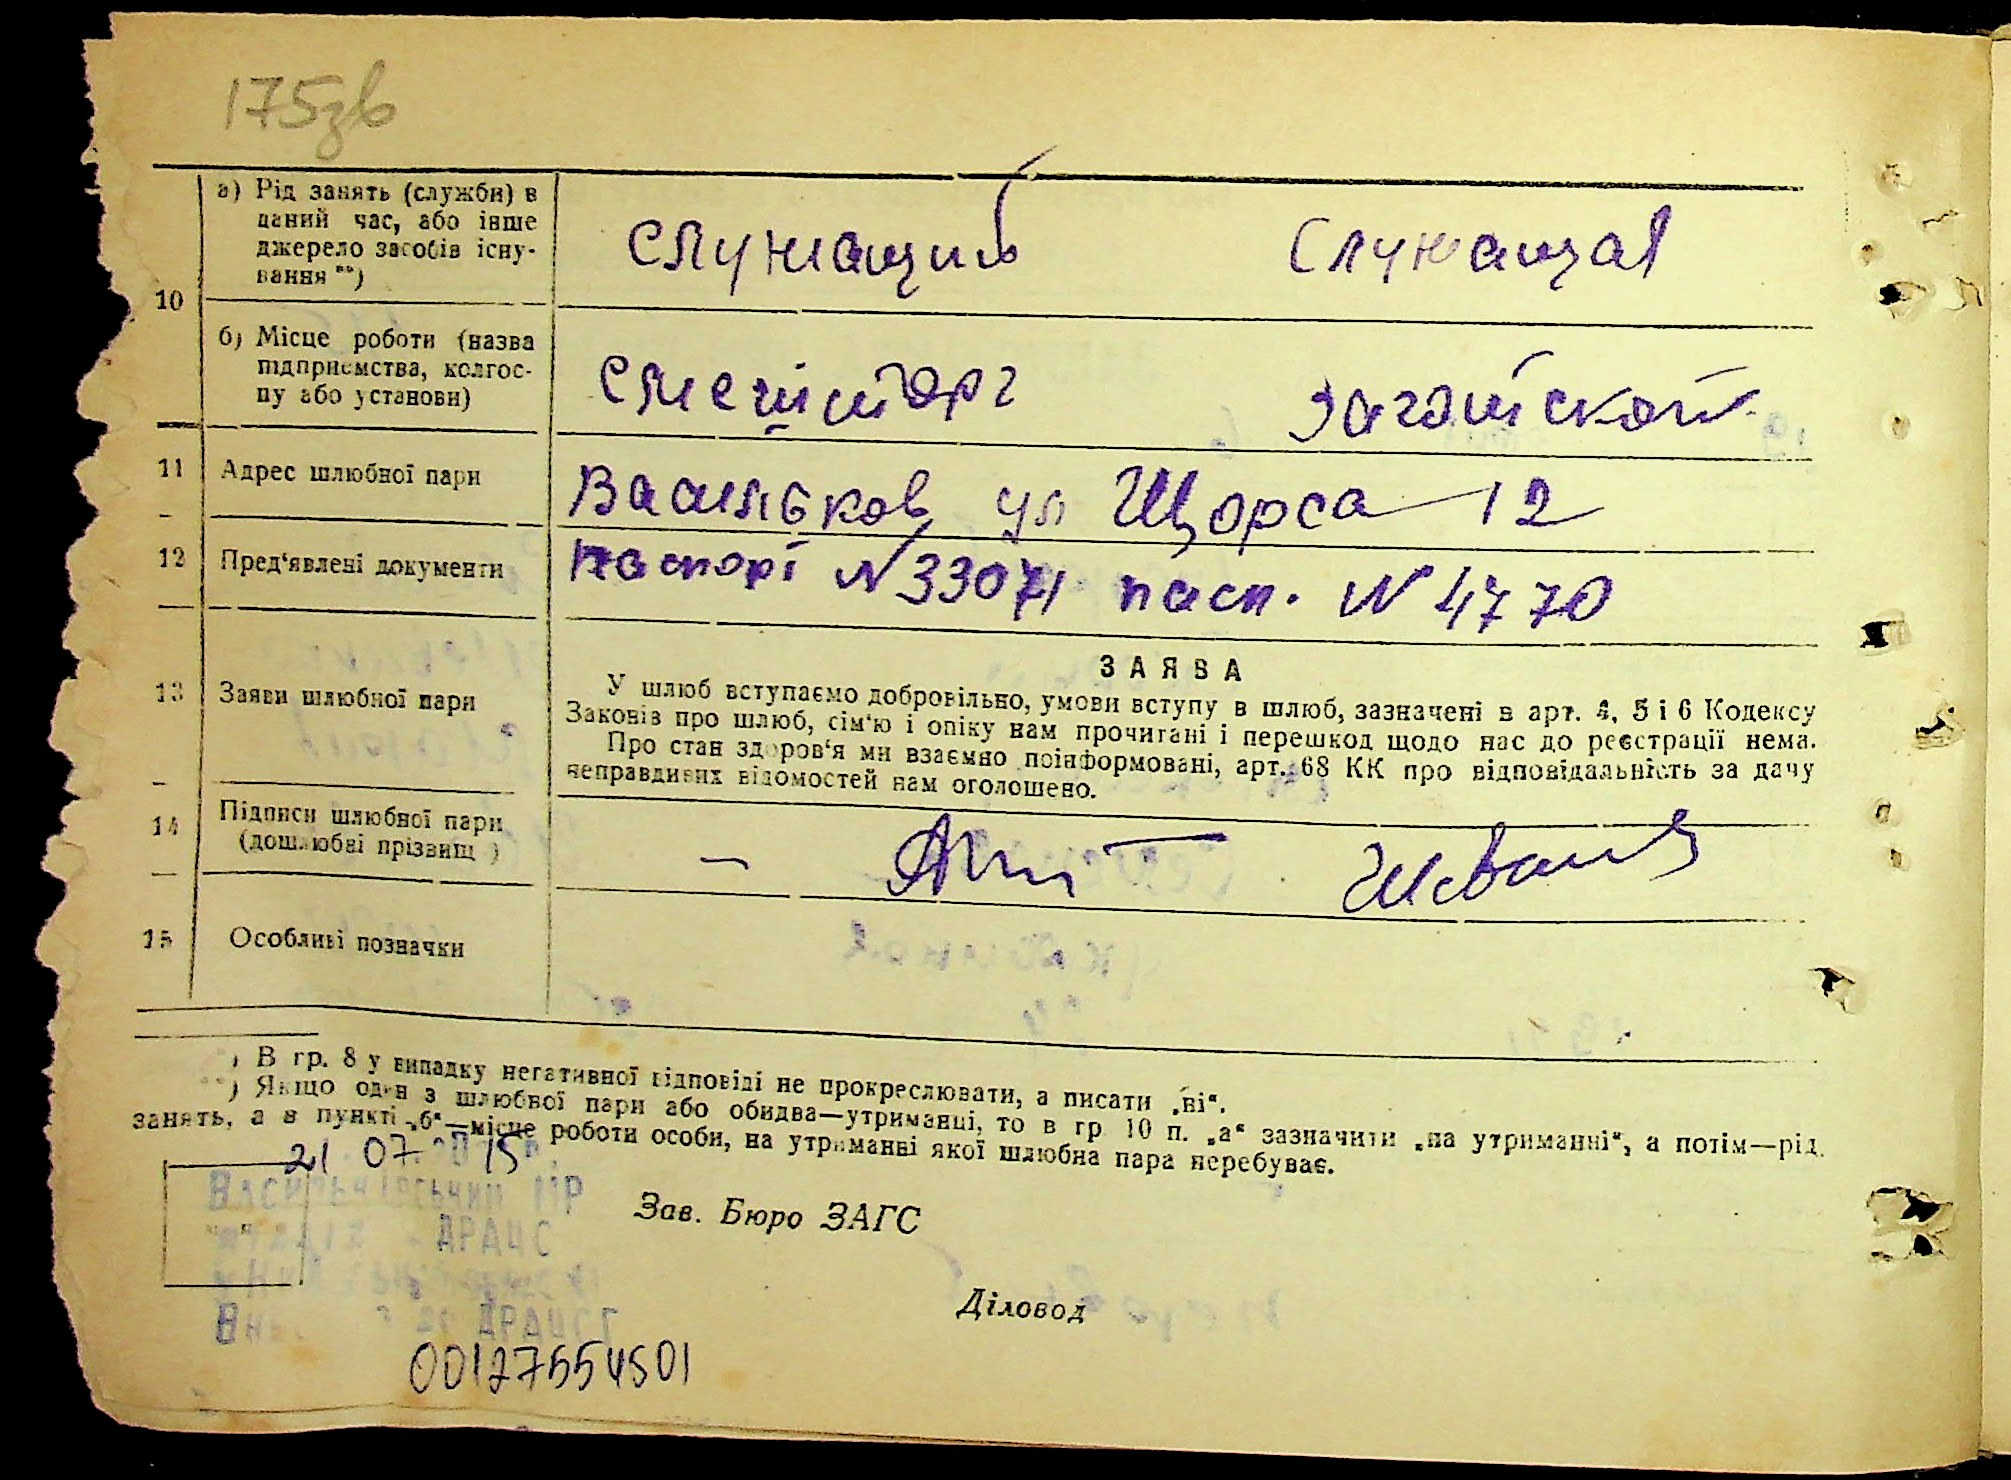 175зв
а) Рід занять (служби) в
даний час, або інше
джерело засобів існу-
вання **)
служащий служащая
10
б) Місце роботи (назва
підприємства, колгос-
пу або установи)
11 Адрес шлюбної пари
Васильков ул Щорса 12
12 Пред'явлені документи
паспорт N 33071 пасп. N 4770
13 Заяви шлюбної пари
ЗАЯВА
У шлюб вступаємо добровільно, умови вступу в шлюб, зазначені в арт. 4, 5 і 6 Кодексу
Законів про шлюб, сім'ю і опіку нам прочитані і перешкод щодо нас до реєстрації нема.
Про стан здоров'я ми взаємно поінформовані, арт. 68 КК про відповідальність за дачу
неправдивих відомостей нам оголошено.
14 Підписи шлюбної пари
(дошлюбні прізвищ )
15 Особливі позначки
*) В гр. 8 у випадку негативної відповіді не прокреслювати, а писати „ні“.
**) Якщо один з шлюбної пари або обидва—утриманці, то в гр 10 п. „а“ зазначити „на утриманні“, а потім—рід
занять, а в пункті „б“—місце роботи особи, на утриманні якої шлюбна пара перебуває.
21 07 15
Зав. Бюро ЗАГС
ДРАЦС
Діловод
ДРАЦСГ
00127554501